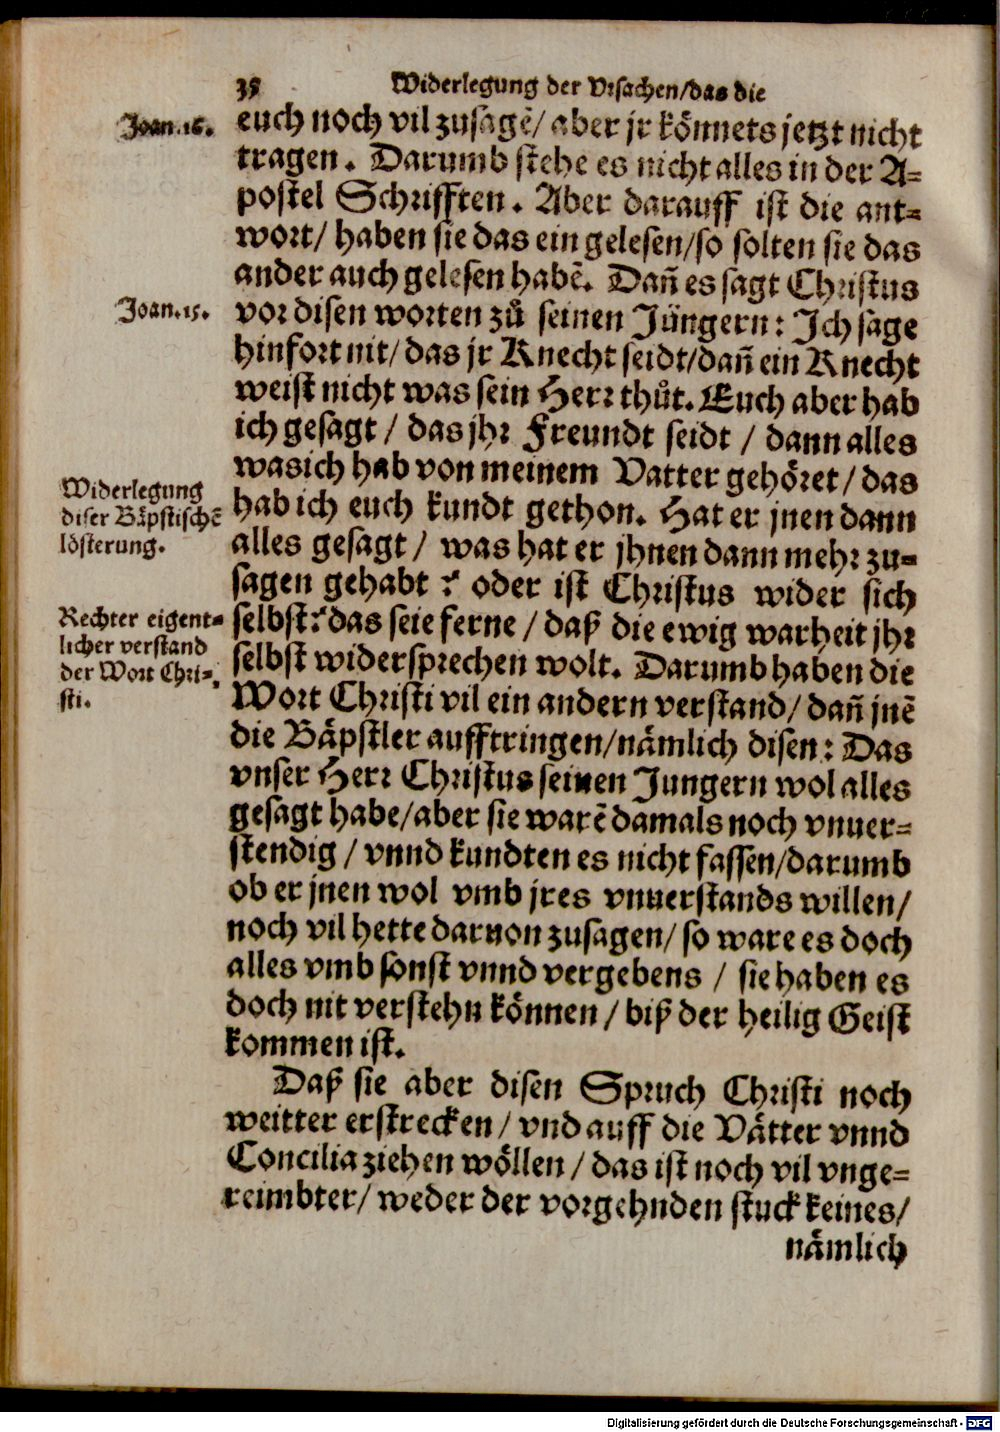 35 Widerlegung der Vrsachen/das die
Joan.16.
euch noch vil zusagẽ/ aber jr könnets jetzt nicht
tragen. Darumb stehe es nicht alles in der A-
postel Schrifften. Aber darauff ist die ant-
wort/ haben sie das ein gelesen/so solten sie das
ander auch gelesen habẽ. Dañ es sagt Christus
Joan.15.
vor disen worten zů seinen Jüngern: Ich sage
hinfort nit/ das jr Knecht seidt/dañ ein Knecht
weist nicht was sein Herr thůt. Euch aber hab
ich gesagt / das jhr Freundt seidt / dann alles
was ich hab von meinem Vatter gehöret / das
Widerlegung
diser Bäpstischẽ
lösterung.
hab ich euch kundt gethon. Hat er jnen dann
alles gesagt / was hat er jhnen dann mehr zu-
sagen gehabt ? oder ist Christus wider sich
Rechter eigent-
licher verstand
der Wort Chri-
sti.
selbst? das seie ferne / daß die ewig warheit jhr
selbst widersprechen wolt. Darumb haben die
Wort Christi vil ein andern verstand/ dañ jnẽ
die Bäpstler aufftringen/nämlich disen: Das
vnser Herr Christus seinen Jungern wol alles
gesagt habe/aber sie warẽ damals noch vnuer-
stendig / vnnd kundten es nicht fassen/darumb
ob er jnen wol vmb jres vnuerstands willen/
noch vil hette daruon zusagen/ so ware es doch
alles vmb sonst vnnd vergebens / sie haben es
doch nit verstehn können / biß der heilig Geist
kommen ist.
Daß sie aber disen Spruch Christi noch
weitter erstrecken / vnd auff die Vätter vnnd
Concilia ziehen wöllen / das ist noch vil vnge-
reimbter/ weder der vorgehnden stuck keines/
nämlich
Digitalisierung gefördert durch die Deutsche Forschungsgemeinschaft - DFG